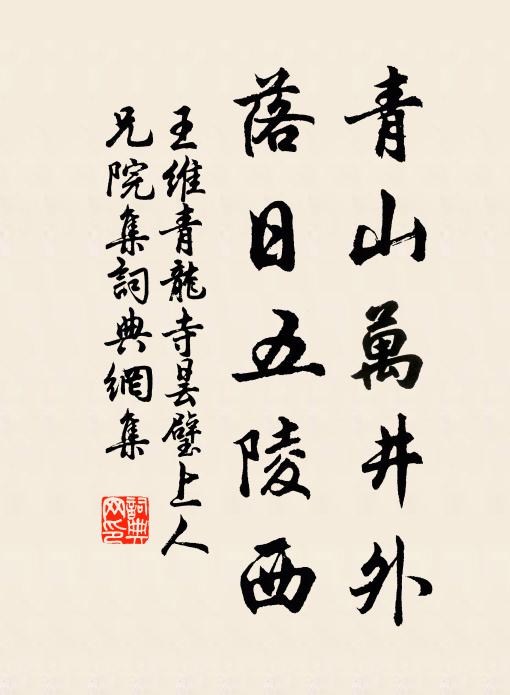 青山萬井外
落日五陵西
王維青龍寺曇璧上人
兄院集詞典網集
詞典
网印